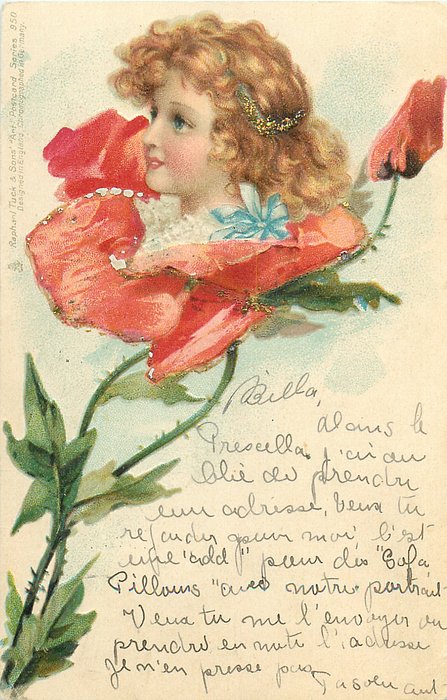 Raphael Tuck & Sons' "Art" Postcard Series 950
Designed in England. Chromographed in Germany.
Billa,
dans le
Prescella j'ai ou
blié de prendre
une adresse, Veux tu
regarder pour moi, c'est
une "add" pour des "Sofa
Pillows" avec notre portrait
Veux tu me l'envoyer ou
prendre en note l'adresse
Je n'en presse pas
Ta soeur